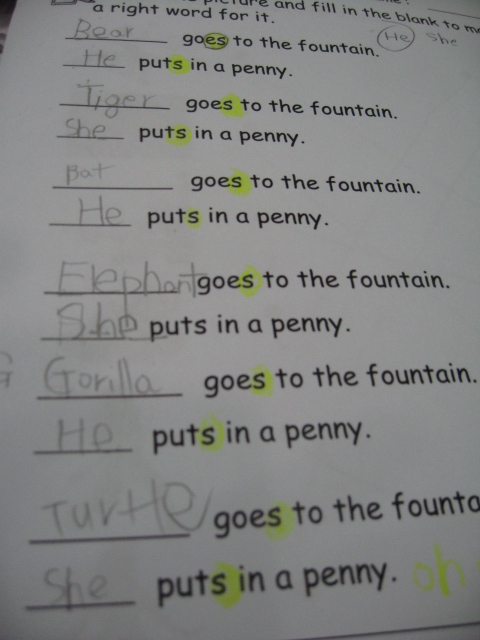 picture and fill in the blank to
a right word for it.
He She
Bear goes to the fountain.
He puts in a penny.
Tiger goes to the fountain.
She puts in a penny.
Bat goes to the fountain.
He puts in a penny.
Elephant goes to the fountain.
She puts in a penny.
Gorilla goes to the fountain.
He puts in a penny.
Turtle goes to the founta
She puts in a penny. oh